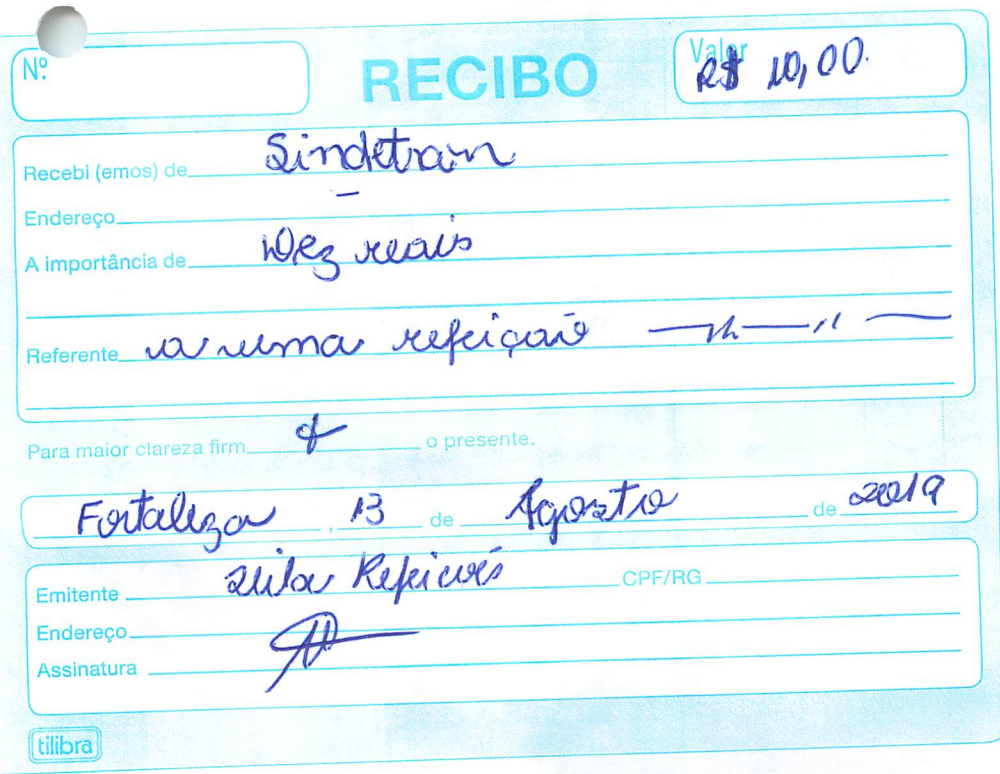 Nº
RECIBO
Valor
R$ 10,00.
Recebi (emos) de Sindetran
Endereço —
A importância de Dez reais
Referente a uma refeição
Para maior clareza firm o presente.
Fortaleza, 13 de Agosto de 2019
Emitente Refeicões CPF/RG
Endereço
Assinatura
tilibra